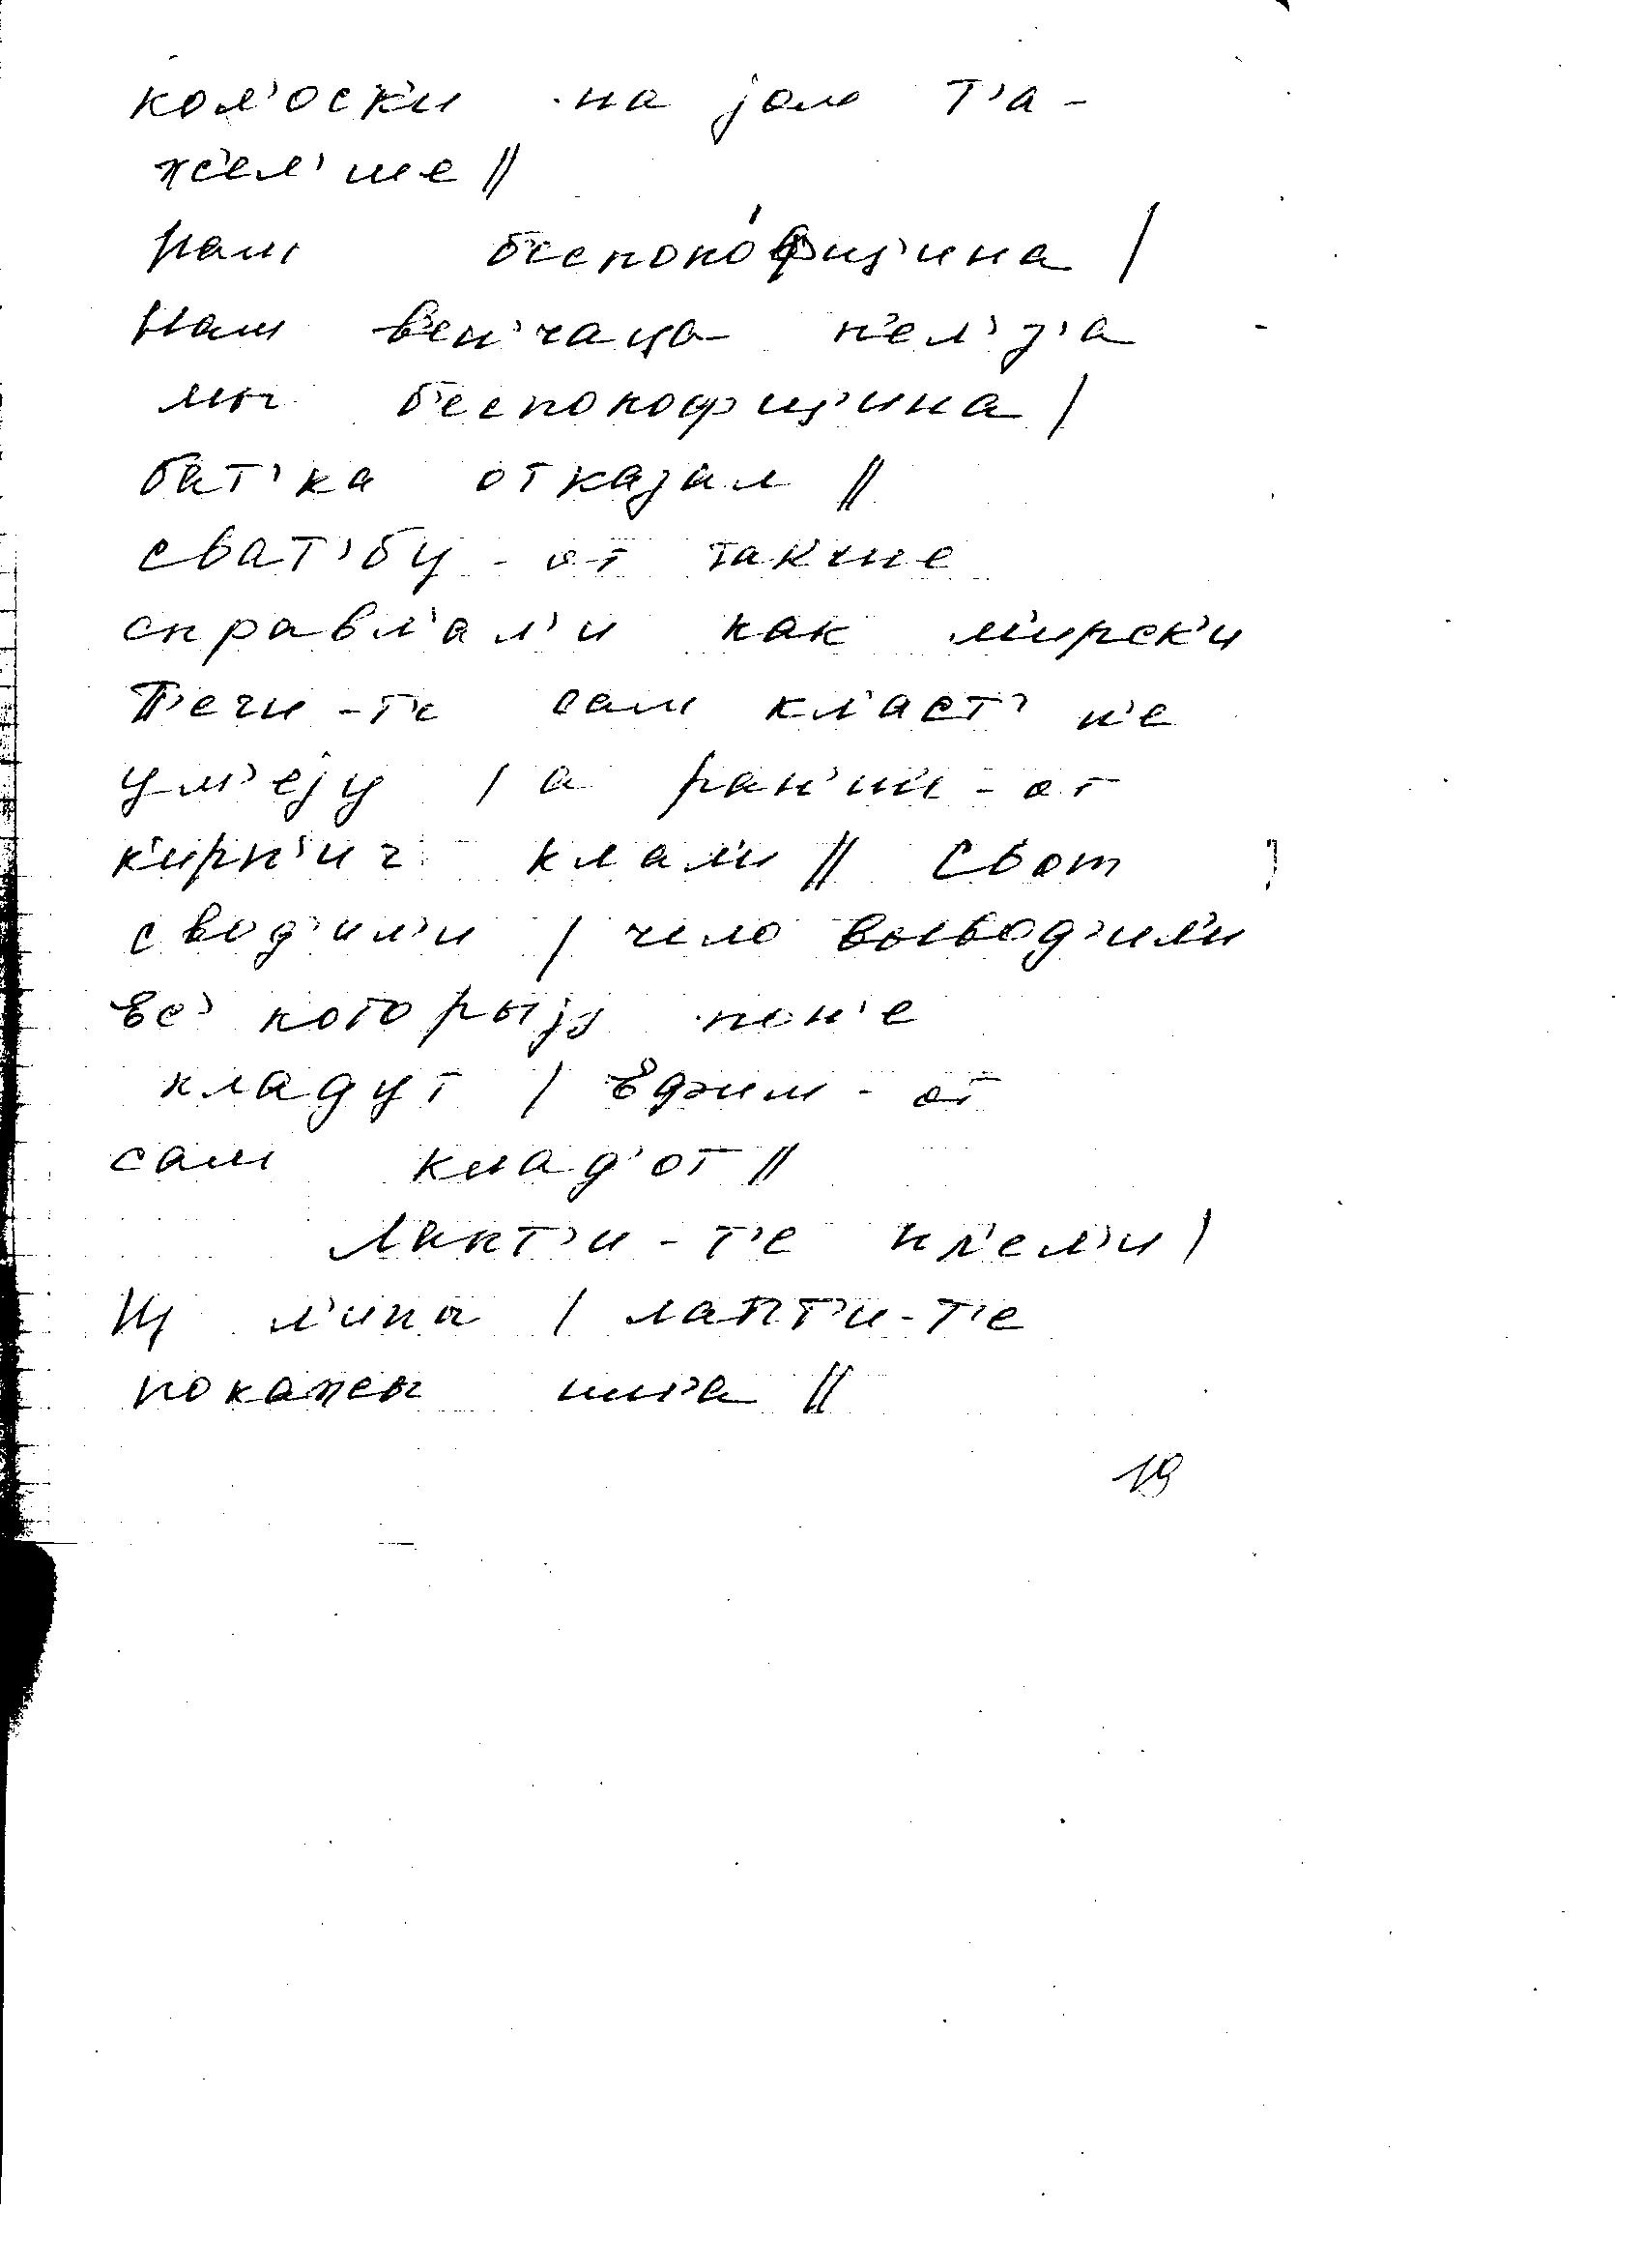 кол'оск'и на јом т'а-
жел'ше //
нам б'еспопо́фщ'ина /
нам в'ен'чаца н'ел'з'а -
мы б'еспопофщ'ина /
бат'ка отказал //
сват'бу - от такие
справл'ал'и как м'ирск'и
п'ечи-т'е сам класт' н'е
ум'еју / а ран'ш - от
к'ирп'ич клал'и // свот
свод'ил'и / чело вывод'ил'и
ес' которыјэ нон'е
кладут / Ефим - от
сам клад'от //
лапт'и-т'е пл'ел'и /
Щ л'ипы / лапт'и-т'е
19